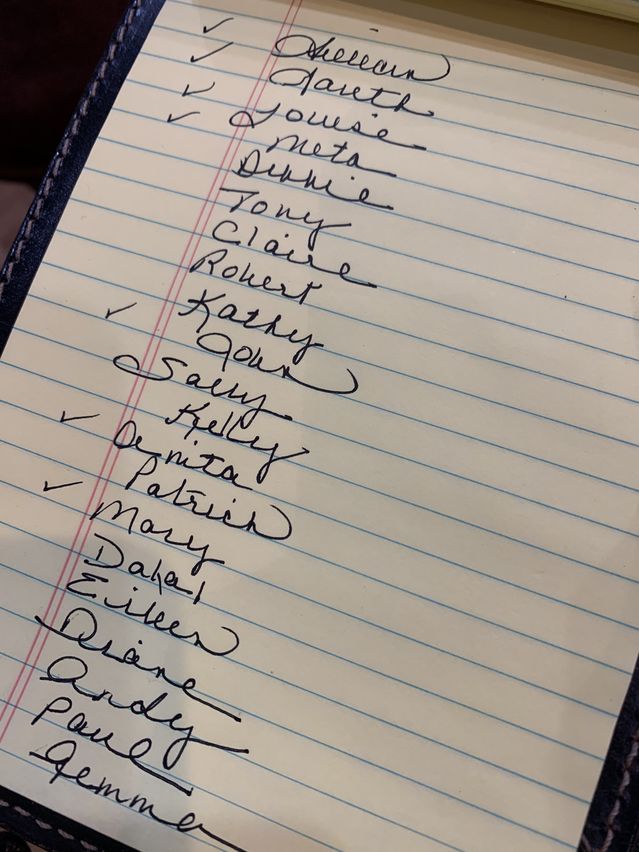 ✓ Gareth
✓ Louise
✓ Meta
Debbie
Tony
Claire
Robert
Kathy
✓ John
Sally
Kelly
✓ Anita
Patrick
✓ Mary
Eileen
Diane
Andy
Paul
Gemma